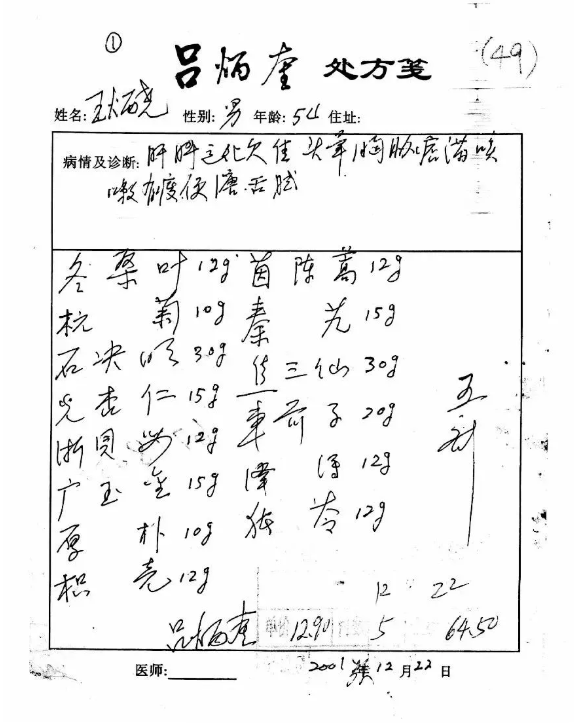 ① 吕炳奎 处方笺 (49)
姓名: 王炳尧 性别: 男 年龄: 54 住址:
病情及诊断: 肝脾运化欠佳 头晕 胸胁痞满 咳
嗽 便溏 舌腻
冬桑叶 12g 茵陈蒿 12g
杭菊 10g 秦艽 15g
石决明 30g 焦三仙 30g
光杏仁 15g 车前子 20g
浙贝母 12g 泽泻 12g
广玉金 15g 猪苓 12g
厚朴 10g 五剂
枳壳 12g
12 22
吕炳奎 12.90 5 64.50
医师:
2001年12月22日